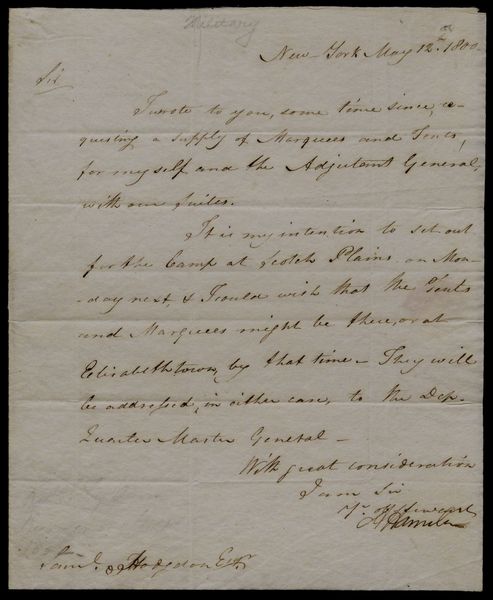 Military
New-York May 12th. 1800
Sir
I wrote to you, some time since, re-
questing a supply of Marquees and Tents,
for myself and the Adjutant General,
with our suites.
It is my intention to set out
for the Camp at Scotch Plains on Mon-
-day next, & I could wish that the Tents
and Marquees might be there, or at
Elizabeth town, by that time - They will
be addressed, in either case, to the Dep.
Quarter Master General -
With great consideration
I am Sir
Yr. Ob. Servant
A Hamilton
Saml. Hodgdon Esqr.